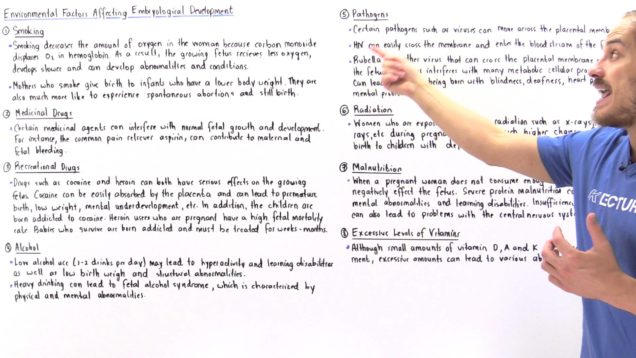 Environmental Factors Affecting Embryological Development
① Smoking
• Smoking decreases the amount of oxygen in the woman because carbon monoxide
displaces O₂ in hemoglobin. As a result, the growing fetus recieves less oxygen,
develops slower and can develop abnormalities and conditions.
• Mothers who smoke give birth to infants who have a lower body weight. They are
also much more like to experience spontaneous abortions and still birth.
② Medicinal Drugs
• Certain medicinal agents can interfere with normal fetal growth and development.
For instance, the common pain reliever aspirin, can contribute to maternal and
fetal bleeding.
③ Recreational Drugs
• Drugs such as cocaine and heroin can both have serious effects on the growing
fetus. Cocaine can be easily absorbed by the placenta and can lead to premature
birth, low weight, mental underdevelopment, etc. In addition, the children are
born addicted to cocaine. Heroin users who are pregnant have a high fetal mortality
rate. Babies who survive are born addicted and must be treated for weeks-months.
④ Alcohol
• Low alcohol use (1-2 drinks per day) may lead to hyperactivity and learning disabilities
as well as low birth weigh and structural abnormalities.
• Heavy drinking can lead to fetal alcohol syndrome, which is characterized by
physical and mental abnormalities.
⑤ Pathogens
• Certain pathogens such as viruses can move across the placental
• HIV can easily cross the membrane and enter the blood stream of the
• Rubella is that can cross the placental
the fetus interferes with many metabolic cellular
Can lead being born with blindness, deafness, heart
mental
⑥ Radiation
• Women who are radiation such as x-rays,
rays, etc during higher
birth to children with
⑦ Malnutrition
• When a pregnant woman does not consume
negatively effect the fetus. Severe protein malnutrition
mental abnormalities and learning disabilities.
can also lead to problems with the central nervous
⑧ Excessive Levels of Vitamins
• Although small amounts of vitamin D, A and K
ment, excessive amounts can lead to various
LECTUR